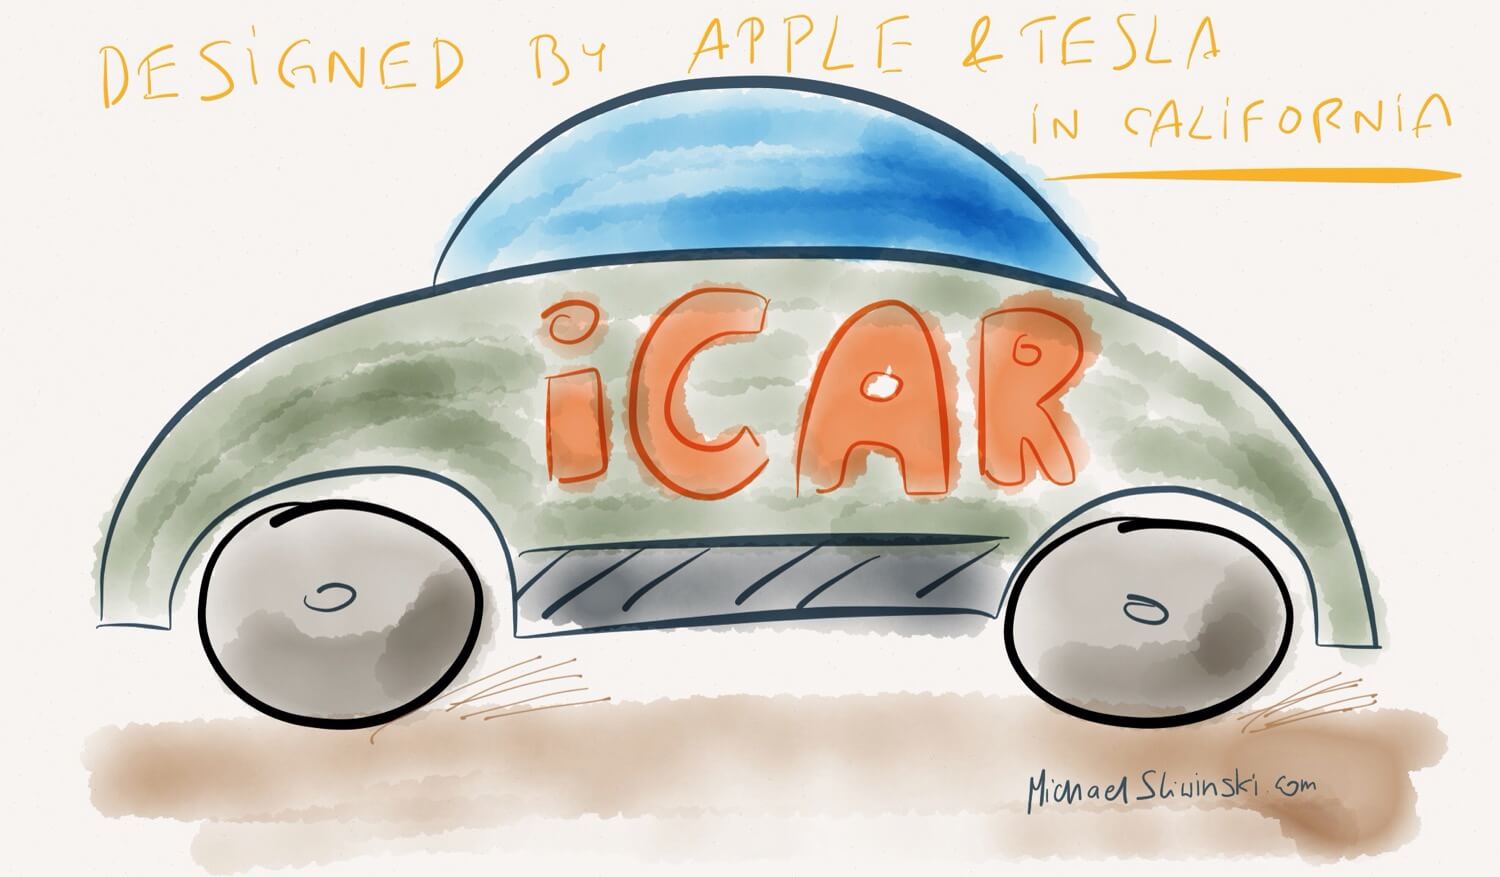 DESiGNED By APPLE & TESLA
iN CALiFORNiA
iCAR
MichaelSliwinski.com